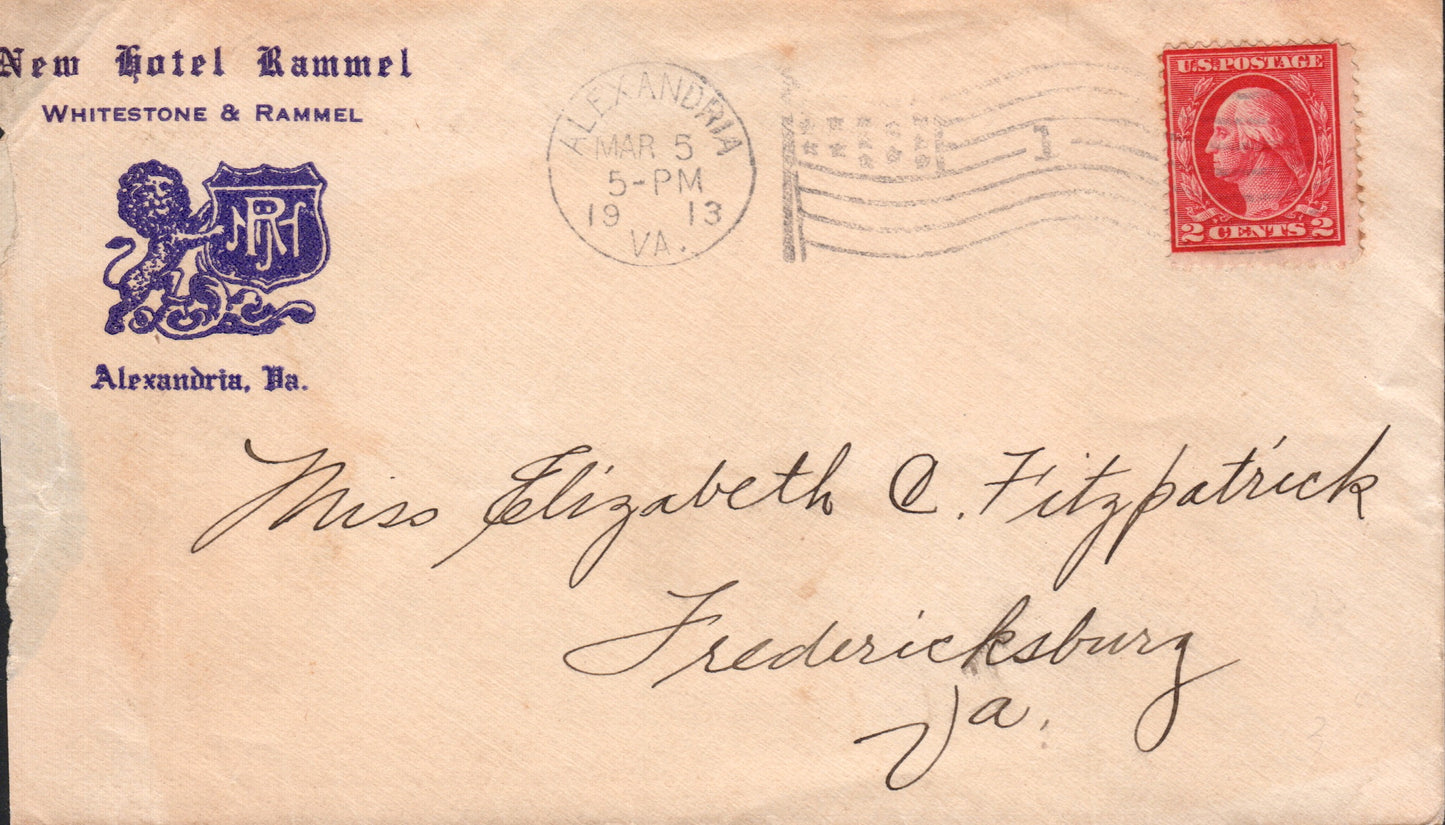 New Hotel Rammel
WHITESTONE & RAMMEL
Alexandria, Va.
ALEXANDRIA
MAR 5
5-PM
19 13
VA.
1
U.S. POSTAGE
2 CENTS 2
Miss Elizabeth C. Fitzpatrick
Fredericksburg
Va.